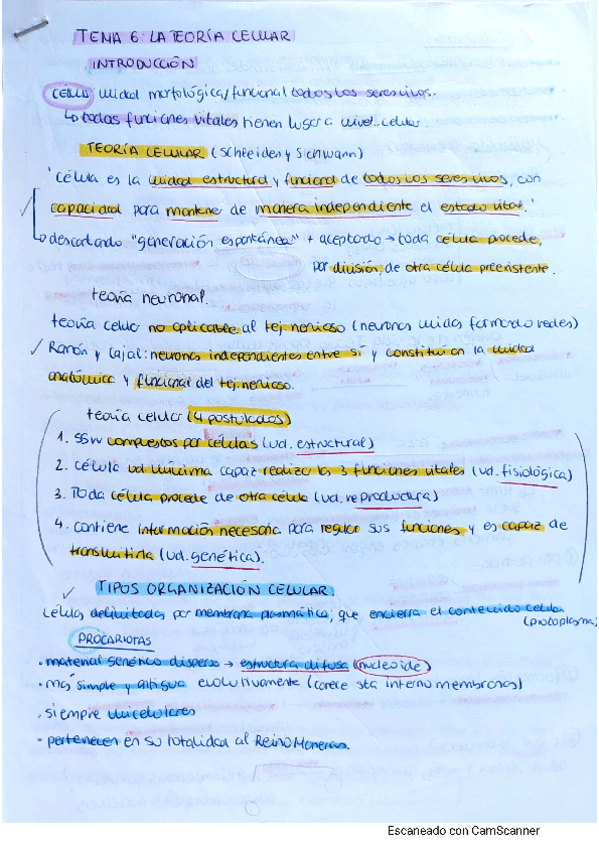 TEMA 6: LA TEORÍA CELULAR
INTRODUCCIÓN
CÉLULA: unidad morfológica/funcional todos los seres vivos.
↳ todas funciones vitales tienen lugar a nivel celular
TEORÍA CELULAR (Schleiden y Schwann)
"Célula es la unidad estructural y funcional de todos los seres vivos, con
capacidad para mantener de manera independiente el estado vital."
↳ descartando "generación espontánea" + aceptado → toda célula procede,
por división, de otra célula preexistente.
teoría neuronal.
teoría celular no aplicable al tej. nervioso (neuronas unidas formando redes)
✓ Ramón y Cajal: neuronas independientes entre sí y constituían la unidad
anatómica y funcional del tej. nervioso.
teoría celular (4 postulados)
1. SSVV compuestos por células (ud. estructural)
2. Célula ud mínima capaz realizar las 3 funciones vitales (ud. fisiológica)
3. Toda célula procede de otra célula (ud. reproductora)
4. Contiene información necesaria para regular sus funciones y es capaz de
transmitirla (ud. genética).
✓ TIPOS ORGANIZACIÓN CELULAR.
Células delimitadas por membrana plasmática; que encierra el contenido celular
(protoplasma)
PROCARIOTAS
· material genético disperso → estructura difusa (nucleoide)
· más simple y antigua evolutivamente (carece sta interno membranas)
· siempre unicelulares
· pertenecen en su totalidad al Reino Moneras.
Escaneado con CamScanner